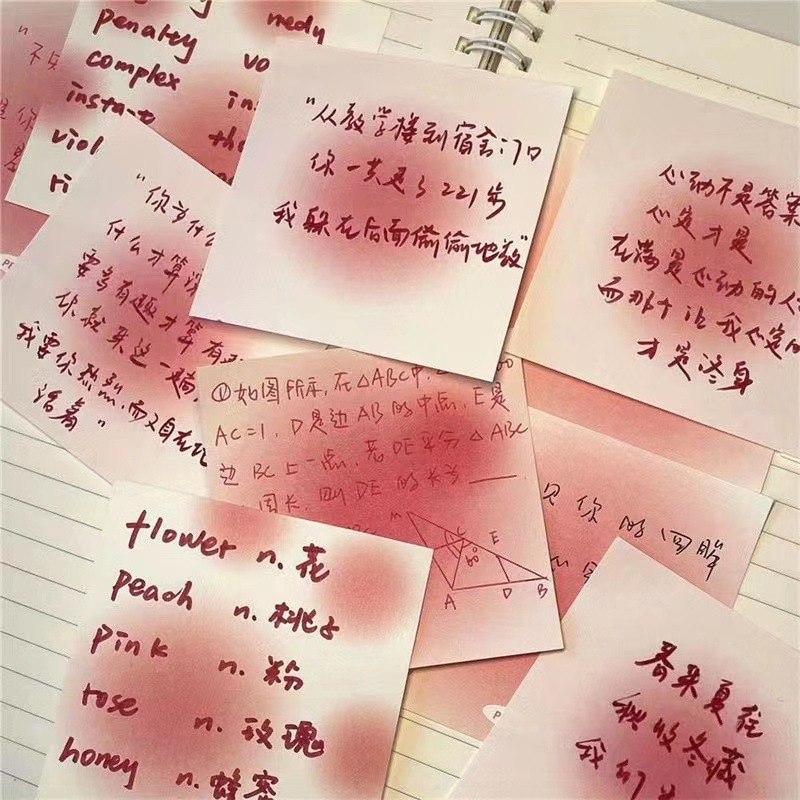 penalty
complex
instant
viol
ri
nedy
vo
in
the
"不
"从教学楼到宿舍门口
你一共走了221步
我躲在后面偷偷地数"
心动不是答案
心定才是
在满是心动的人
而那个让我心定的
才是终身
"你为什么
什么才算
要多有趣才算有
你就来这一趟
我要你热烈,而又自在地
活着"
①如图所示,在△ABC中,
AC=1,D是边AB的中点,E是
边BC上一点,若DE平分△ABC
周长,则DE的长为____
M
C
E
60°
A
D
B
见你的图解
flower n. 花
peach n. 桃子
pink n. 粉
rose n. 玫瑰
honey n. 蜂蜜
春来夏在
秋收冬藏
我们